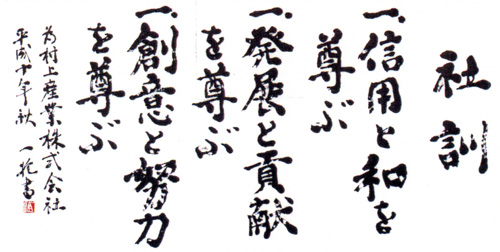 社訓
一、信用と和を
尊ぶ
一、発展と貢献
を尊ぶ
一、創意と努力
を尊ぶ
為村上産業株式会社
平成十年秋 一花書